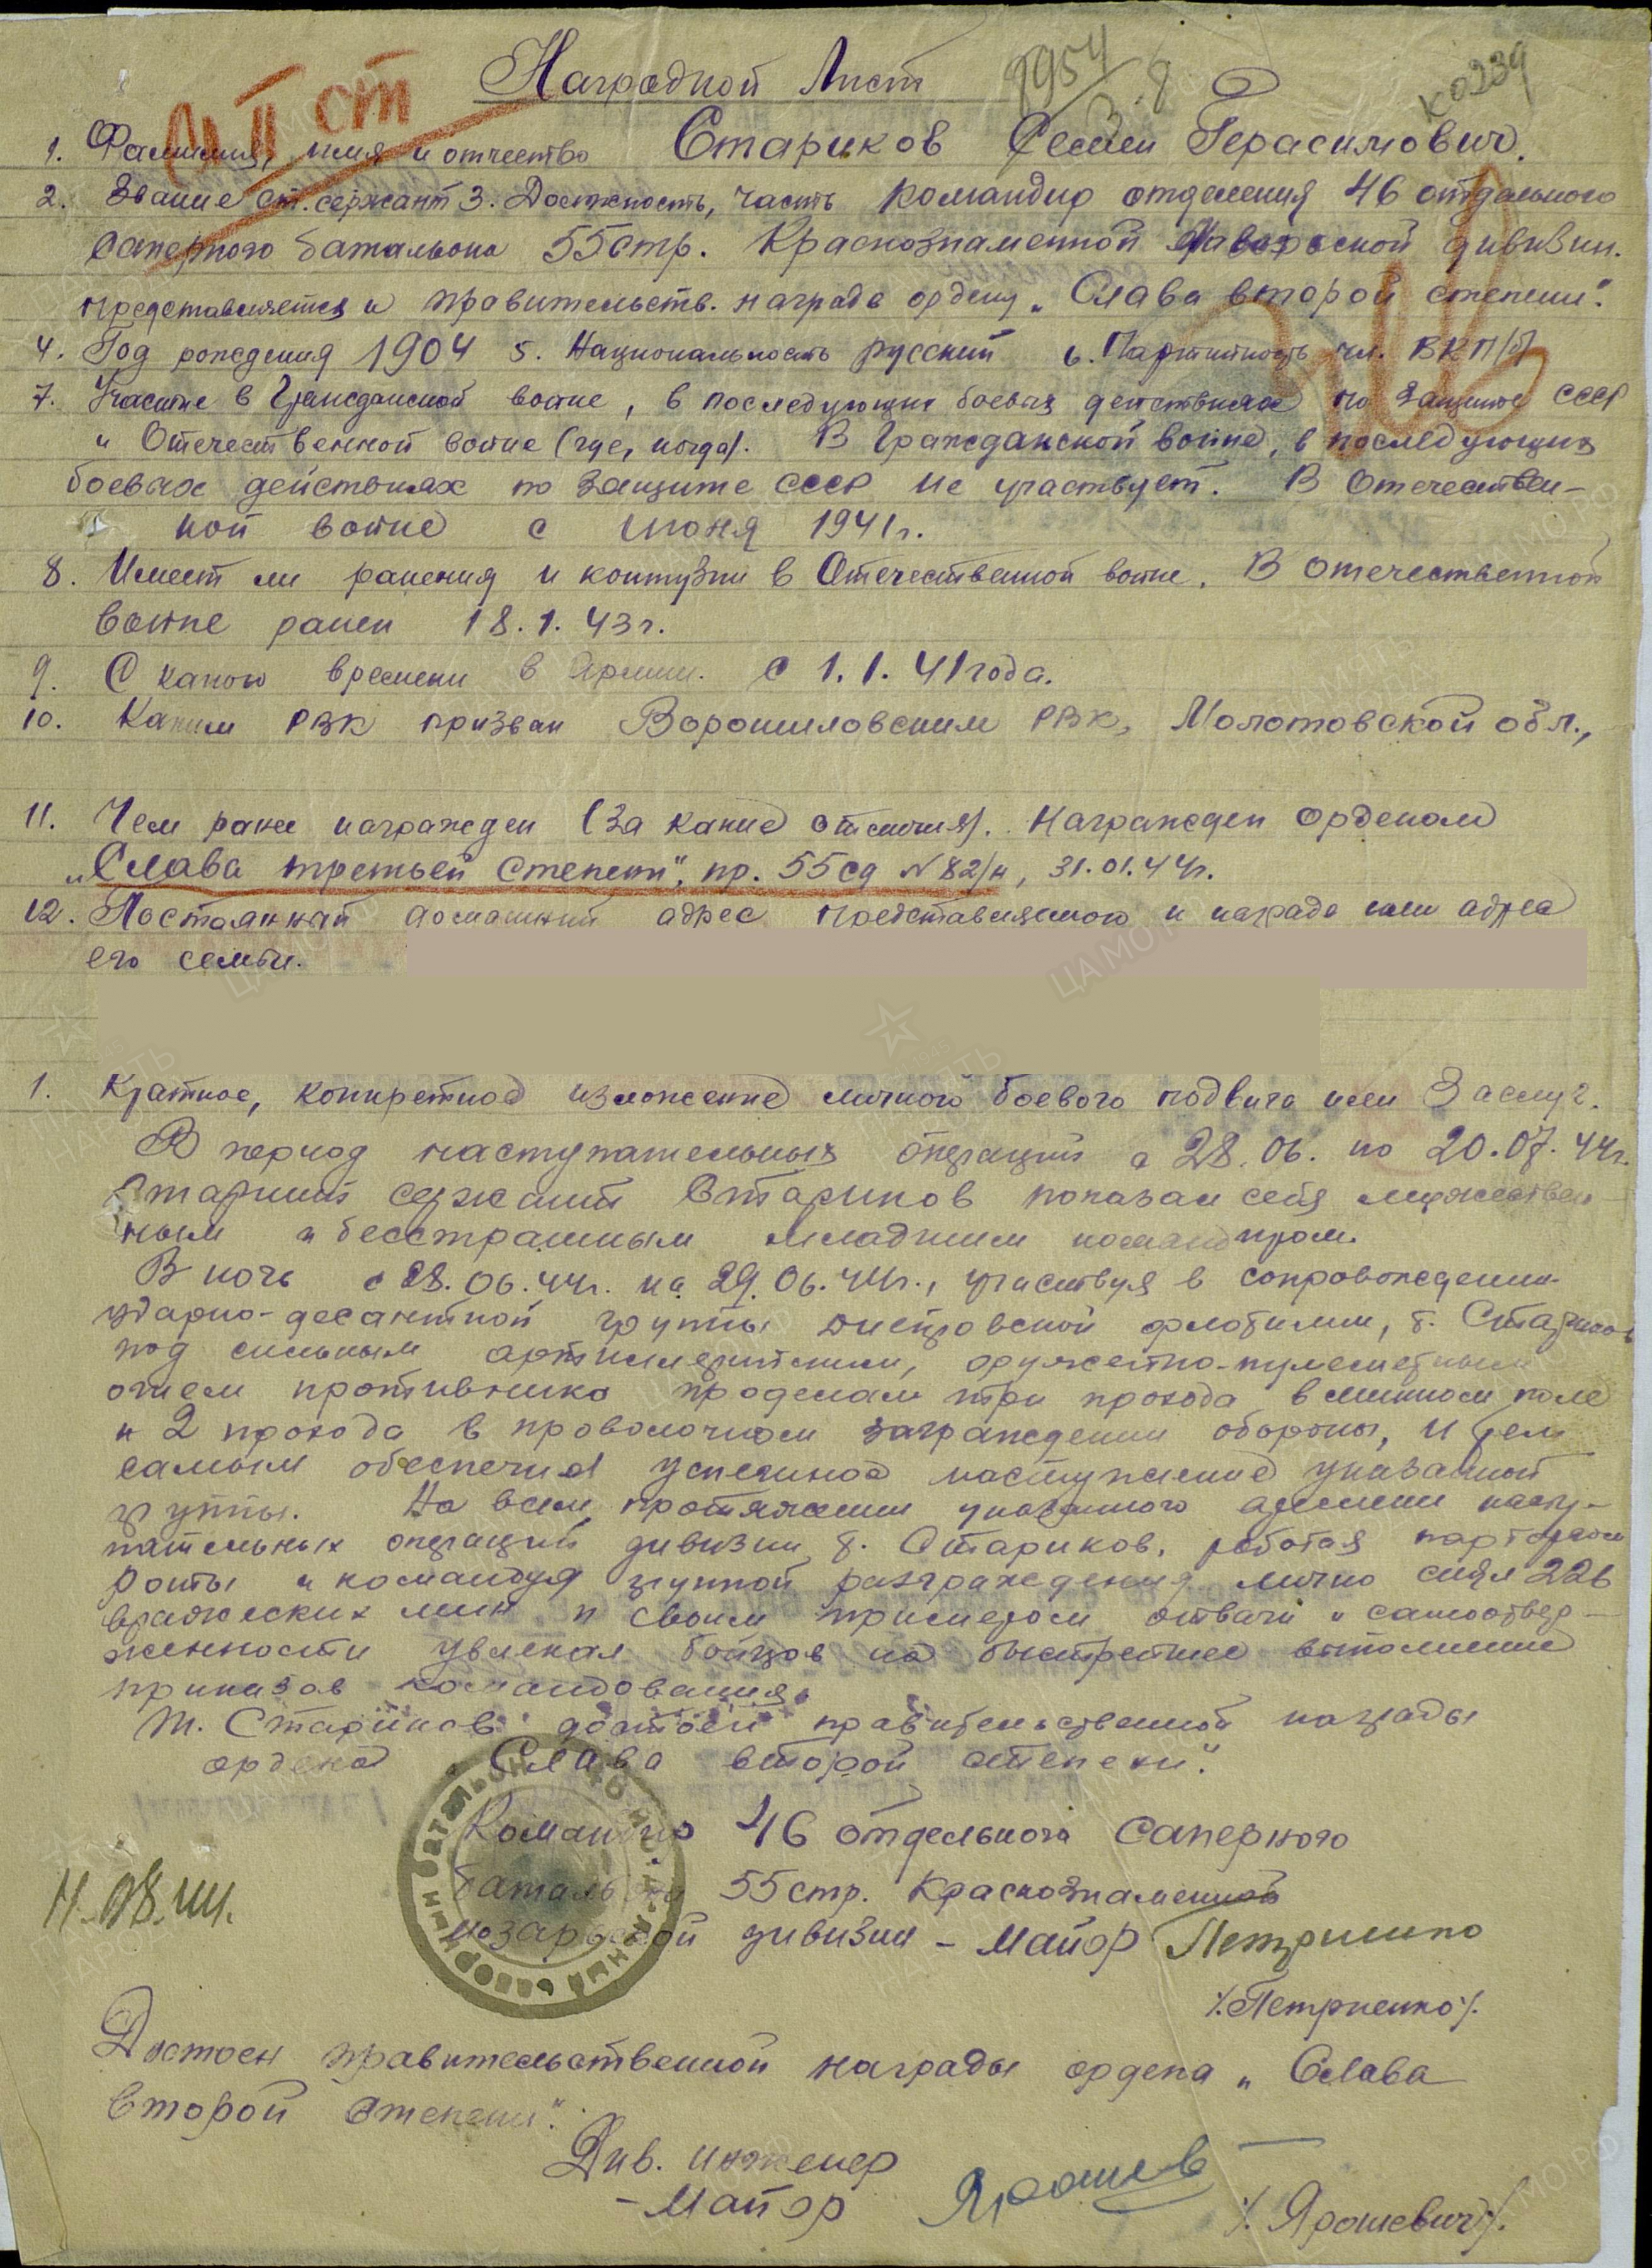 Наградной Лист
К0239
II ст
1. Фамилия, имя и отчество Стариков Семен Герасимович.
2. Звание ст. сержант 3. Должность, часть командир отделения 46 отдельного
саперного батальона 55 стр. Краснознаменной Мозырской дивизии.
представляется к правительств. награде ордену „Слава второй степени".
4. Год рождения 1904 5. Национальность русский 6. Партийность чл. ВКП/б/
7. Участие в Гражданской войне, в последующих боевых действиях по защите СССР
и Отечественной войне (где, когда). В Гражданской войне, в последующих
боевых действиях по защите СССР не участвует. В Отечествен-
ной войне с июня 1941г.
8. Имеет ли ранения и контузии в Отечественной войне. В отечественной
войне ранен 18.1.43г.
9. С какого времени в Армии. с 1.1.41 года.
10. Каким РВК призван Ворошиловским РВК, Молотовской обл.,
11. Чем ранее награжден (за какие отличия). Награжден орденом
„Слава третьей степени", пр. 55сд №82/н, 31.01.44г.
12. Постоянный домашний адрес представляемого к награде или адрес
его семьи.
1. Краткое, конкретное изложение личного боевого подвига или заслуг.
В период наступательных операций с 28.06. по 20.07.44г.
Старший сержант Стариков показал себя мужествен-
ным и бесстрашным младшим командиром.
В ночь с 28.06.44г. на 29.06.44г., участвуя в сопровождении
ударно-десантной группы Днепровской флотилии, т. Стариков
под сильным артиллерийским, оружейно-пулеметным
огнем противника проделал три прохода в минном поле
и 2 прохода в проволочном заграждении обороны, и тем
самым обеспечил успешное наступление указанной
группы. На всем протяжении указанного времени насту-
пательных операций дивизии т. Стариков, работая парторгом
роты и командуя группой разграждения лично снял 226
вражеских мин и своим примером отваги и самоотвер-
женности увлекал бойцов на быстрейшее выполнение
приказов командования.
Т. Стариков достоен правительственной награды
ордена „Слава второй степени".
Командир 46 отдельного Саперного
батальона 55 стр. Краснознаменной
Мозырской дивизии - Майор Петриенко
/.Петриенко/.
Достоен правительственной награды ордена „Слава
второй степени".
Див. инженер
- Майор
/.Ярошевич/.